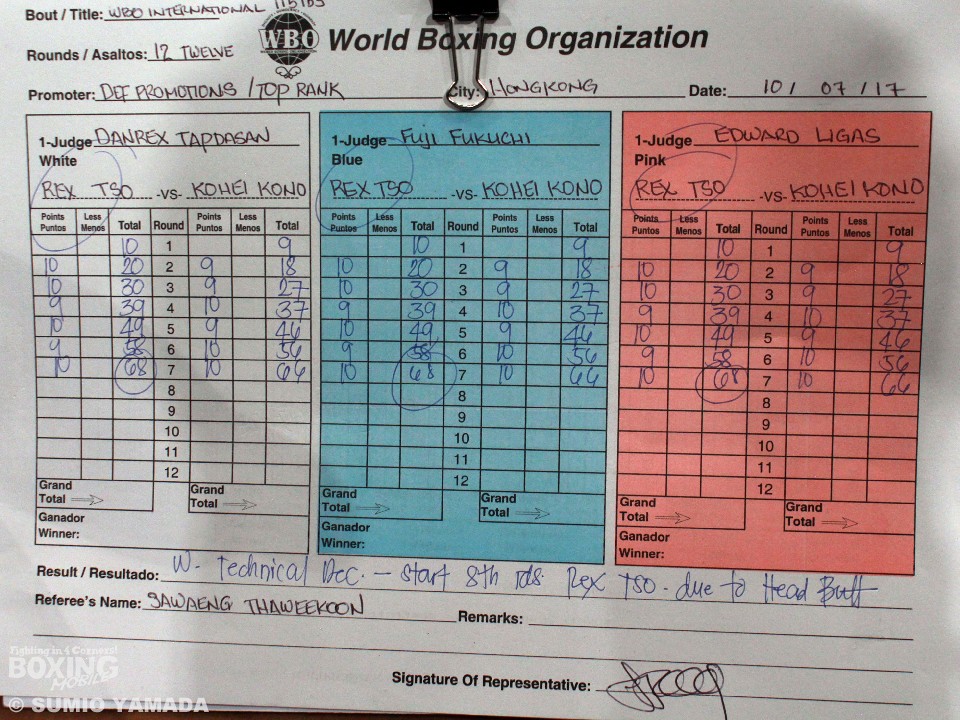 Bout / Title: WBO INTERNATIONAL 115 lbs
WBO World Boxing Organization
Rounds / Asaltos: 12 TWELVE
Promoter: DEF PROMOTIONS / TOP RANK City: HONGKONG Date: 10 / 07 / 17
1-Judge DANREX TAPDASAN 1-Judge FUJI FUKUCHI 1-Judge EDWARD LIGAS
White Blue Pink
REX TSO -vs- KOHEI KONO REX TSO -vs- KOHEI KONO REX TSO -vs- KOHEI KONO
Points Less Total Round Points Less Total Points Less Total Round Points Less Total Points Less Total Round Points Less Total
Puntos Menos Puntos Menos Puntos Menos Puntos Menos Puntos Menos Puntos Menos
10 1 9 10 1 9 10 1 9
10 20 2 9 18 10 20 2 9 18 10 20 2 9 18
10 30 3 9 27 10 30 3 9 27 10 30 3 9 27
9 39 4 10 37 9 39 4 10 37 9 39 4 10 37
10 49 5 9 46 10 49 5 9 46 10 49 5 9 46
9 58 6 10 56 9 58 6 10 56 9 58 6 10 56
10 68 7 10 66 10 68 7 10 66 10 68 7 10 66
8 8 8
9 9 9
10 10 10
11 11 11
12 12 12
Grand Grand Grand Grand Grand Grand
Total Total Total Total Total Total
Ganador Ganador Ganador
Winner: Winner: Winner:
Result / Resultado: W. Technical Dec. – start 8th rds. Rex TSO. due to Head Butt
Referee's Name: SAWAENG THAWEEKOON Remarks:
Signature Of Representative:
Fighting in 4 Corners!
BOXING
MOBILE
© SUMIO YAMADA